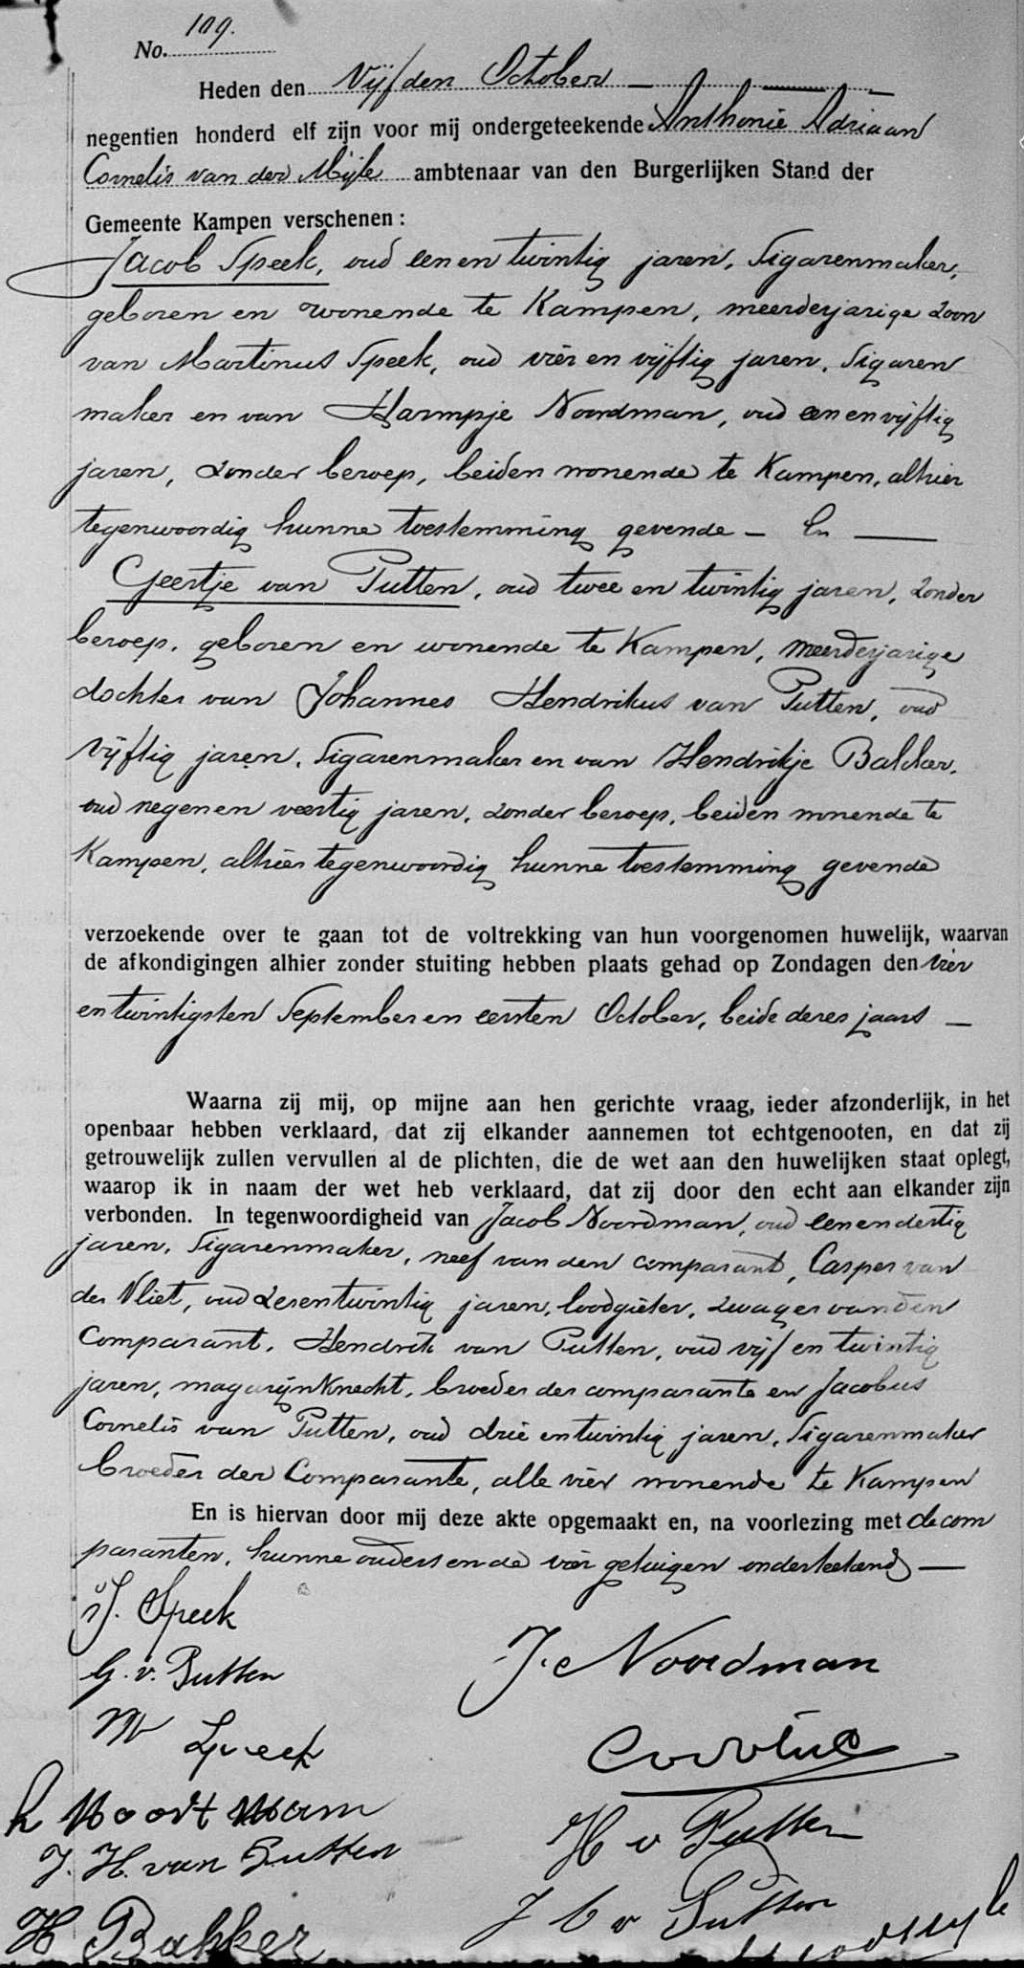 No. 109.
Heden den Vijfden October
negentien honderd elf zijn voor mij ondergeteekende Anthonie Adriaan
Cornelis van der Mijle ambtenaar van den Burgerlijken Stand der
Gemeente Kampen verschenen:
Jacob Speek, oud een en twintig jaren, Sigarenmaker,
geboren en wonende te Kampen, meerderjarige zoon
van Martinus Speek, oud vier en vijftig jaren, Sigaren
maker en van Harmpje Noordman, oud een en vijftig
jaren, zonder beroep, beiden wonende te Kampen, alhier
tegenwoordig hunne toestemming gevende — En —
Geertje van Putten, oud twee en twintig jaren, zonder
beroep, geboren en wonende te Kampen, meerderjarige
dochter van Johannes Hendrikus van Putten, oud
vijftig jaren, Sigarenmaker en van Hendrikje Bakker,
oud negen en veertig jaren, zonder beroep, beiden wonende te
Kampen, alhier tegenwoordig hunne toestemming gevende
verzoekende over te gaan tot de voltrekking van hun voorgenomen huwelijk, waarvan
de afkondigingen alhier zonder stuiting hebben plaats gehad op Zondagen den vier
en twintigsten September en eersten October, beide dezes jaars —
Waarna zij mij, op mijne aan hen gerichte vraag, ieder afzonderlijk, in het
openbaar hebben verklaard, dat zij elkander aannemen tot echtgenooten, en dat zij
getrouwelijk zullen vervullen al de plichten, die de wet aan den huwelijken staat oplegt,
waarop ik in naam der wet heb verklaard, dat zij door den echt aan elkander zijn
verbonden. In tegenwoordigheid van Jacob Noordman, oud een en dertig
jaren, Sigarenmaker, neef van den comparant, Casper van
der Vliet, oud zes en twintig jaren, loodgieter, zwager van den
Comparant, Hendrik van Putten, oud vijf en twintig
jaren, magazijnknecht, broeder der comparante en Jacobus
Cornelis van Putten, oud drie en twintig jaren, Sigarenmaker
broeder der Comparante, alle vier wonende te Kampen
En is hiervan door mij deze akte opgemaakt en, na voorlezing met de com
paranten, hunne ouders en de vier getuigen onderteekend —
J. Speek
J. Noordman
G. v. Putten
M Speek
h Noordtman
H v Putten
J. H. van Putten
J C v Putten
H Bakker